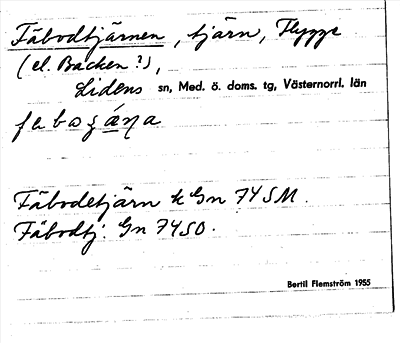 Fäbodtjärnen, tjärn, Flygge
(el. Backen?),
Lidens sn, Med. ö. doms. tg, Västernorrl. län
Fäbodetjärn k Gn 74 SM.
Fäbodtj. Gn 74 SO.
Bertil Flemström 1955